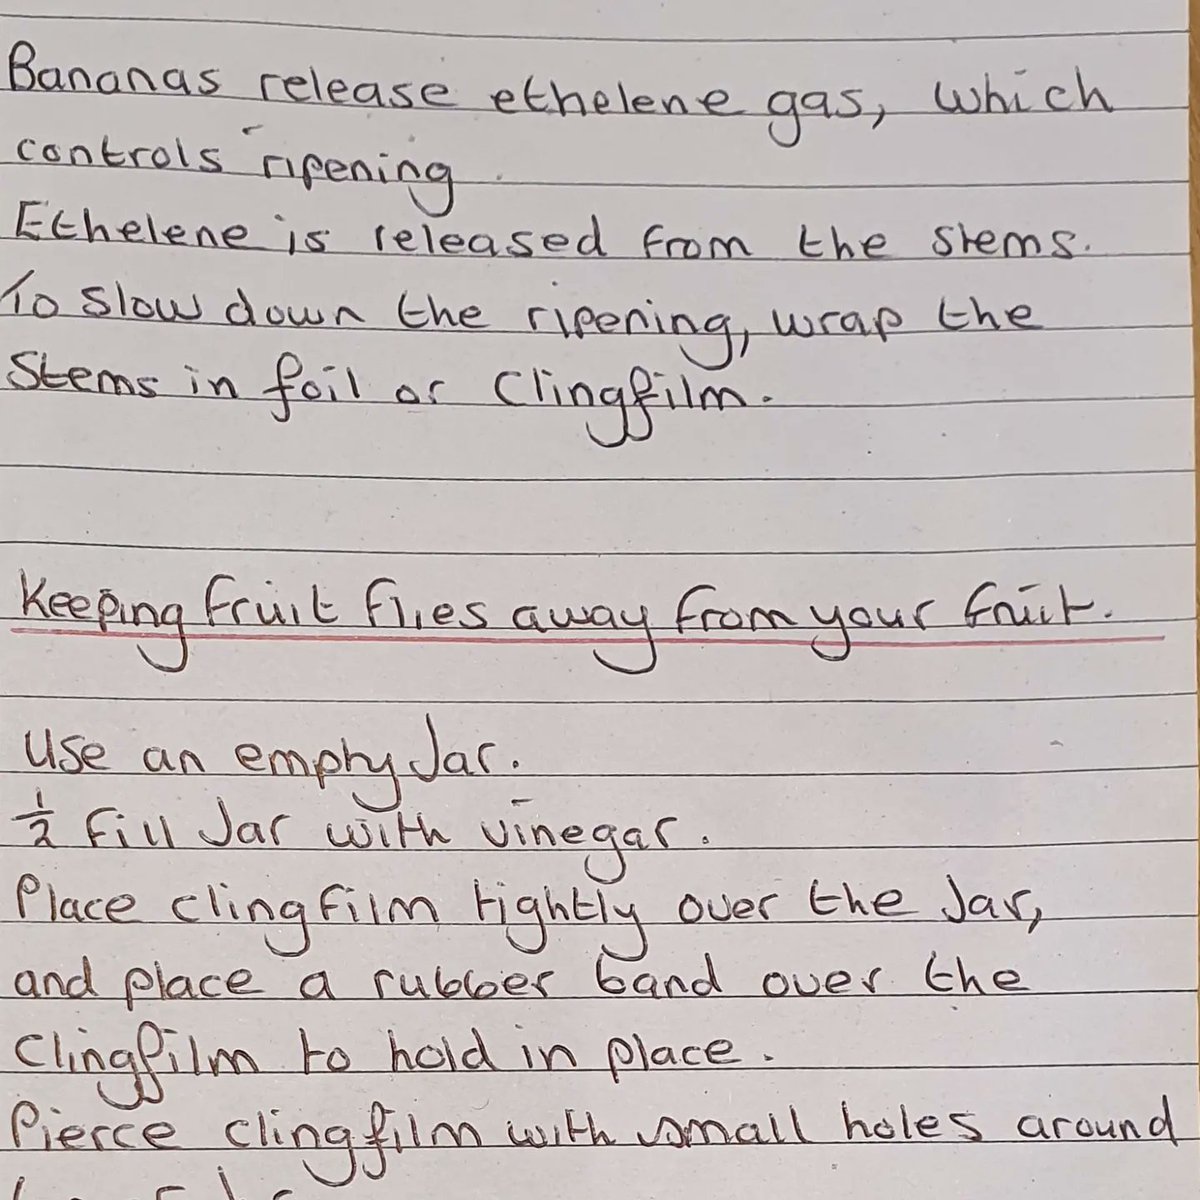 Bananas release ethelene gas, which
controls ripening
Ethelene is released from the stems.
To slow down the ripening, wrap the
Stems in foil or Clingfilm.
Keeping fruit flies away from your fruit.
Use an empty Jar.
½ fill Jar with vinegar.
Place clingfilm tightly over the Jar,
and place a rubber band over the
Clingfilm to hold in place.
Pierce clingfilm with small holes around